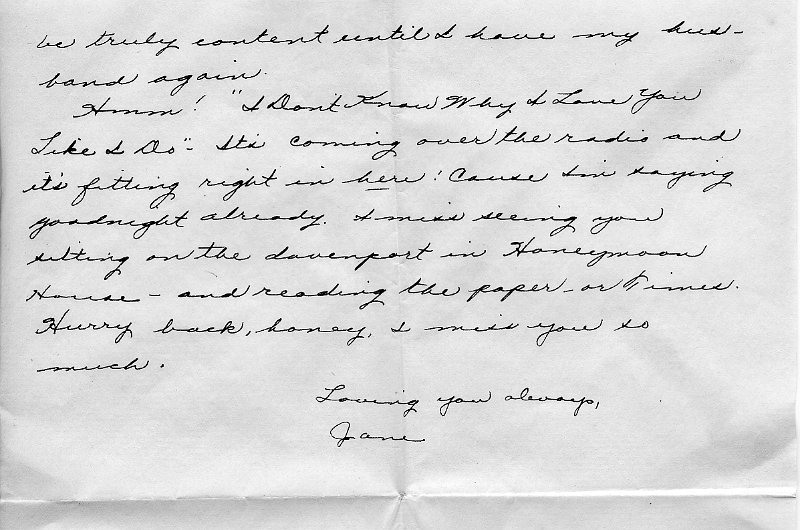 be truly content until I have my hus-
band again.
Hmm! "I Don't Know Why I Love You
Like I Do" - It's coming over the radio and
it's fitting right in here! Cause I'm saying
goodnight already. I miss seeing you
sitting on the davenport in Honeymoon
House - and reading the paper or Times.
Hurry back, honey, I miss you so
much.
Loving you always,
Jane